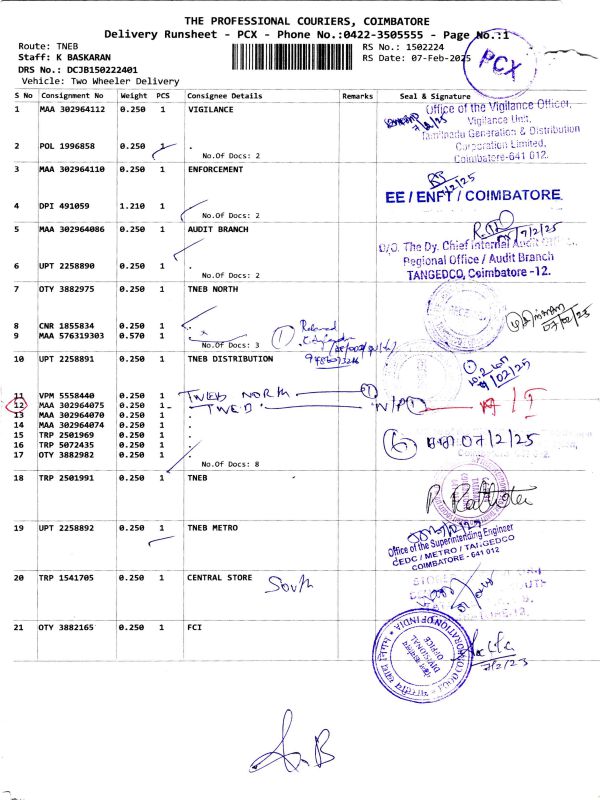 THE PROFESSIONAL COURIERS, COIMBATORE
Delivery Runsheet - PCX - Phone No.:0422-3505555 - Page No.:1
Route: TNEB
RS No.: 1502224
Staff: K BASKARAN
RS Date: 07-Feb-2025
DRS No.: DCJB150222401
Vehicle: Two Wheeler Delivery
PCX
S No Consignment No Weight PCS Consignee Details Remarks Seal & Signature
1 MAA 302964112 0.250 1 VIGILANCE
Office of the Vigilance Officer,
Vigilance Unit,
Tamilnadu Generation & Distribution
Corporation Limited,
Coimbatore-641 012.
2 POL 1996858 0.250 1 .
No.Of Docs: 2
3 MAA 302964110 0.250 1 ENFORCEMENT
EE / ENFT / COIMBATORE
4 DPI 491059 1.210 1 .
No.Of Docs: 2
5 MAA 302964086 0.250 1 AUDIT BRANCH
7/2/25
O/O. The Dy. Chief Internal Audit
Regional Office / Audit Branch
TANGEDCO, Coimbatore -12.
6 UPT 2258890 0.250 1 .
No.Of Docs: 2
7 OTY 3882975 0.250 1 TNEB NORTH
07/02/25
8 CNR 1855834 0.250 1 .
9 MAA 576319303 0.570 1 .
No.Of Docs: 3
10 UPT 2258891 0.250 1 TNEB DISTRIBUTION
11 VPM 5558440 0.250 1 TNEB NORTH 1
12 MAA 302964075 0.250 1 TNEB N/P 1
13 MAA 302964070 0.250 1 .
14 MAA 302964074 0.250 1 .
15 TRP 2501969 0.250 1 .
16 TRP 5072435 0.250 1 .
6 07/2/25
17 OTY 3882982 0.250 1 .
No.Of Docs: 8
18 TRP 2501991 0.250 1 TNEB
19 UPT 2258892 0.250 1 TNEB METRO
Office of the Superintending Engineer
CEDC / METRO / TANGEDCO
COIMBATORE - 641 012
20 TRP 1541705 0.250 1 CENTRAL STORE South
21 OTY 3882165 0.250 1 FCI
DIVISIONAL
OFFICE